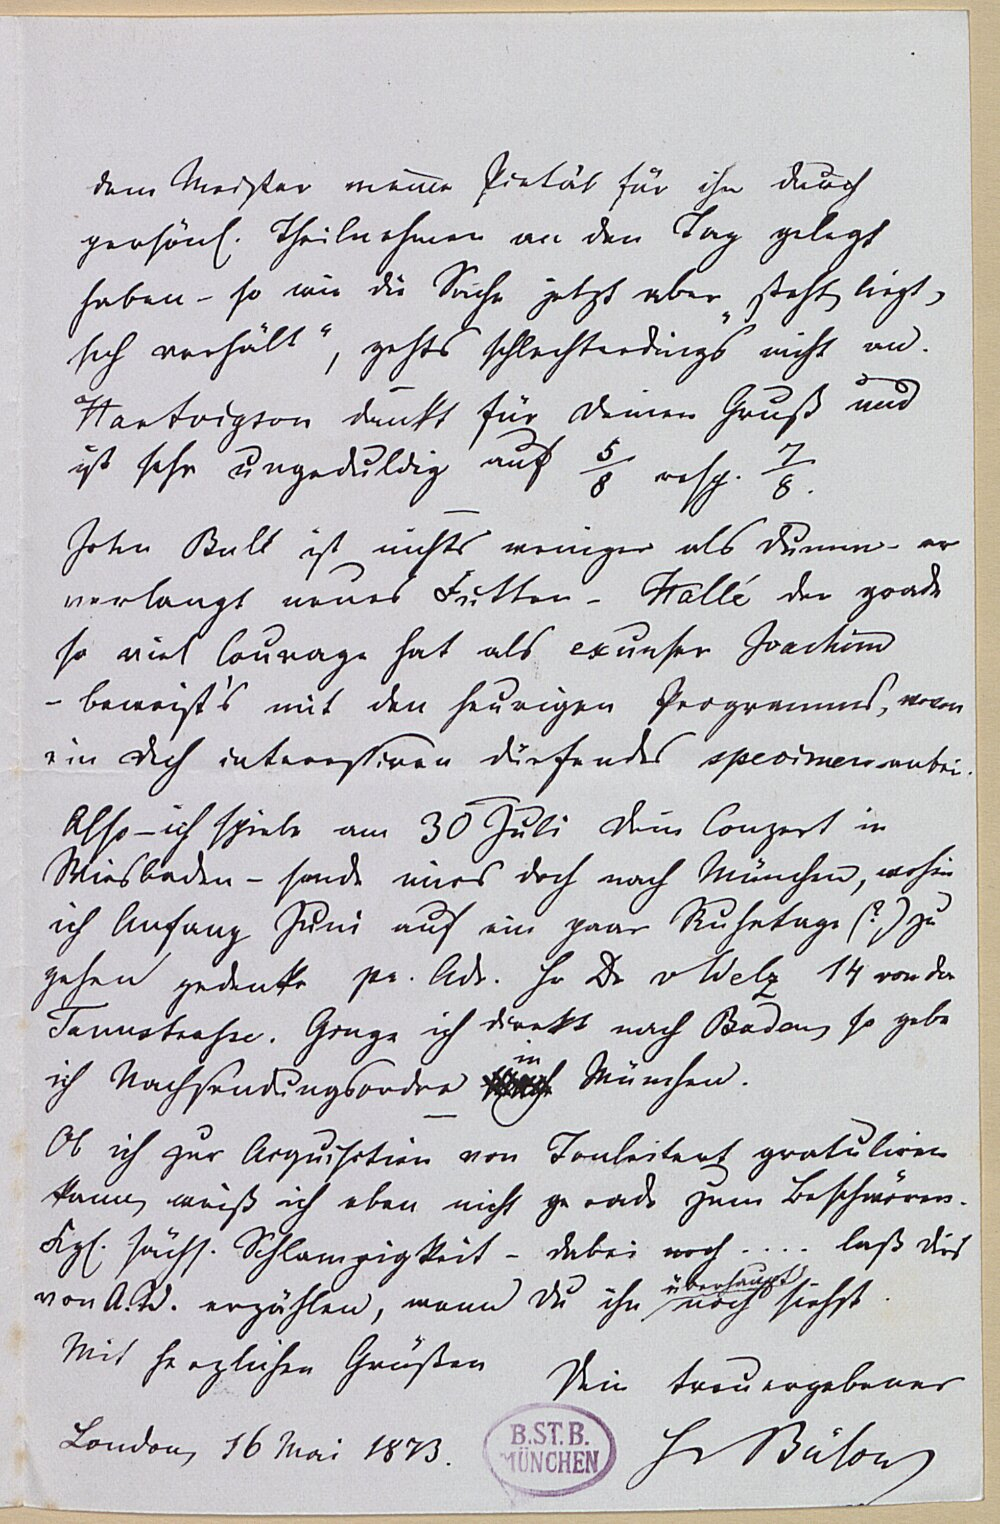 dem Meister meine Pietät für ihn durch
persönl. Theilnehmen an den Tag gelegt
haben – so wie die Sache jetzt aber „steht, liegt,
sich verhält“, gehts schlechterdings nicht an.
Hartvigson dankt für Deinen Gruß und
ist sehr ungeduldig auf 5/8 resp. 7/8.
John Bull ist nichts weniger als dumm – er
verlangt neues Futter – Hallé der grade
so viel Courage hat als exunser Joachim
– beweist's mit den heurigen Programms, wovon
ein Dich interessiren dürfendes specimen anbei.
Also – ich spiele am 30 Juli Dein Conzert in
Wiesbaden – sende mirs doch nach München, wohin
ich Anfang Juni auf ein paar Ruhetage (?) zu
gehen gedenke pr. Adr. Hr Dr v Welz 14 von der
Tannstrasse. Ginge ich direkt nach Baden, so gebe
ich Nachsendungsordre in München.
Ob ich zur Acquisition von Tonleitert gratuliren
kann, weiß ich eben nicht gerade zum Beschwören.
Kgl. sächs. Schlampigkeit – dabei noch .... laß Dirs
von A. R. erzählen, wenn Du ihn überhaupt noch siehst.
Mit herzlichen Grüßen
Dein treuergebener
London, 16 Mai 1873.
Hv Bülow
B.ST.B.
MÜNCHEN